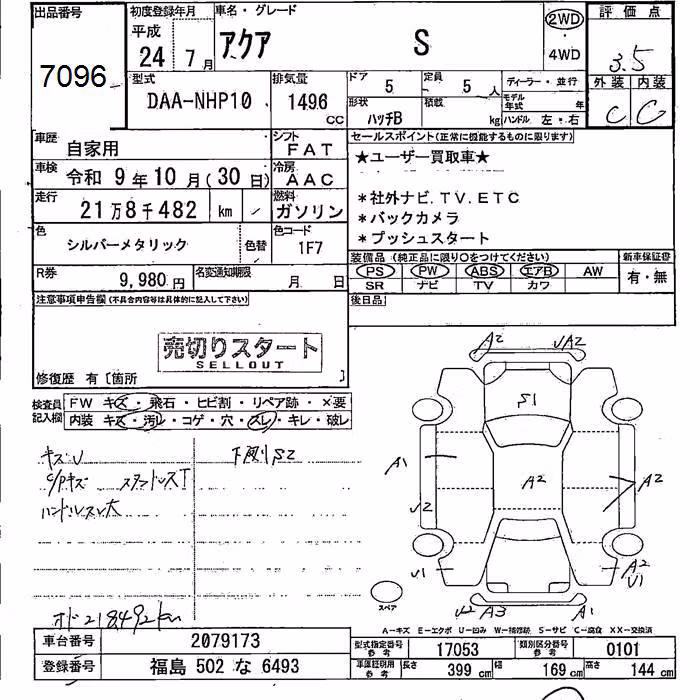 出品番号
7096
初度登録年月
平成
24 年 7 月
車名・グレード
アクア S
2WD
・
4WD
評価点
3.5
外装 内装
C C
型式
DAA-NHP10
排気量
1496 CC
ドア 5
定員 5 人
形状 ハッチB
積載 kg
ディーラー・並行
モデル年式 年
ハンドル 左・右
車歴 自家用
シフト FAT
車検 令和 9年10月(30日)
冷房 AAC
走行 21万8千482 km
燃料 ガソリン
色 シルバーメタリック 色替
色コード 1F7
R券 9,980 円
名変通知期限 月 日
セールスポイント(正常に機能するものに限ります)
★ユーザー買取車★
*社外ナビ.TV.ETC
*バックカメラ
*プッシュスタート
装備品(純正品に限り○をつけてください)
PS PW ABS エアB AW
SR ナビ TV カワ
新車保証書
有・無
後日品
注意事項申告欄(不具合内容等は具体的に記入して下さい)
売切りスタート
SELLOUT
修復歴 有〔箇所 〕
検査員記入欄
FW キズ・飛石・ヒビ割・リペア跡・×要
内装 キズ・汚レ・コゲ・穴・スレ・キレ・破レ
キズU
下廻りS2
C/Pキズ
ハンドルスレ大
オド218492km
A2 UA2
S1
A1
A2
A2
U2
U1
A2
U1
U2 A3 A1
スペア
A-キズ E-エクボ U-凹み W-補修跡 S-サビ C-腐食 XX-交換済
車台番号 2079173
登録番号 福島 502 な 6493
型式指定番号 参考 17053
類別区分番号 参考 0101
車庫証明用 参考 長さ 399 cm 幅 169 cm 高さ 144 cm